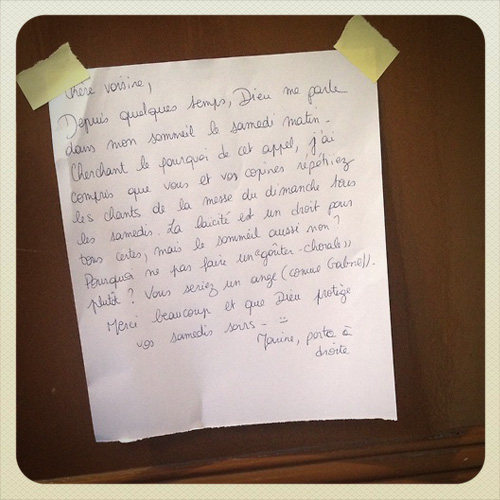 Chère voisine,
Depuis quelques temps, Dieu me parle
dans mon sommeil le samedi matin.
Cherchant le pourquoi de cet appel, j'ai
compris que vous et vos copines répétiez
les chants de la messe du dimanche tous
les samedis. La laïcité est un droit pour
tous certes, mais le sommeil aussi non ?
Pourquoi ne pas faire un "goûter-chorale"
plutôt ? Vous seriez un ange (comme Gabriel).
Merci beaucoup et que Dieu protège
vos samedis soirs - :)
Marine, porte à
droite